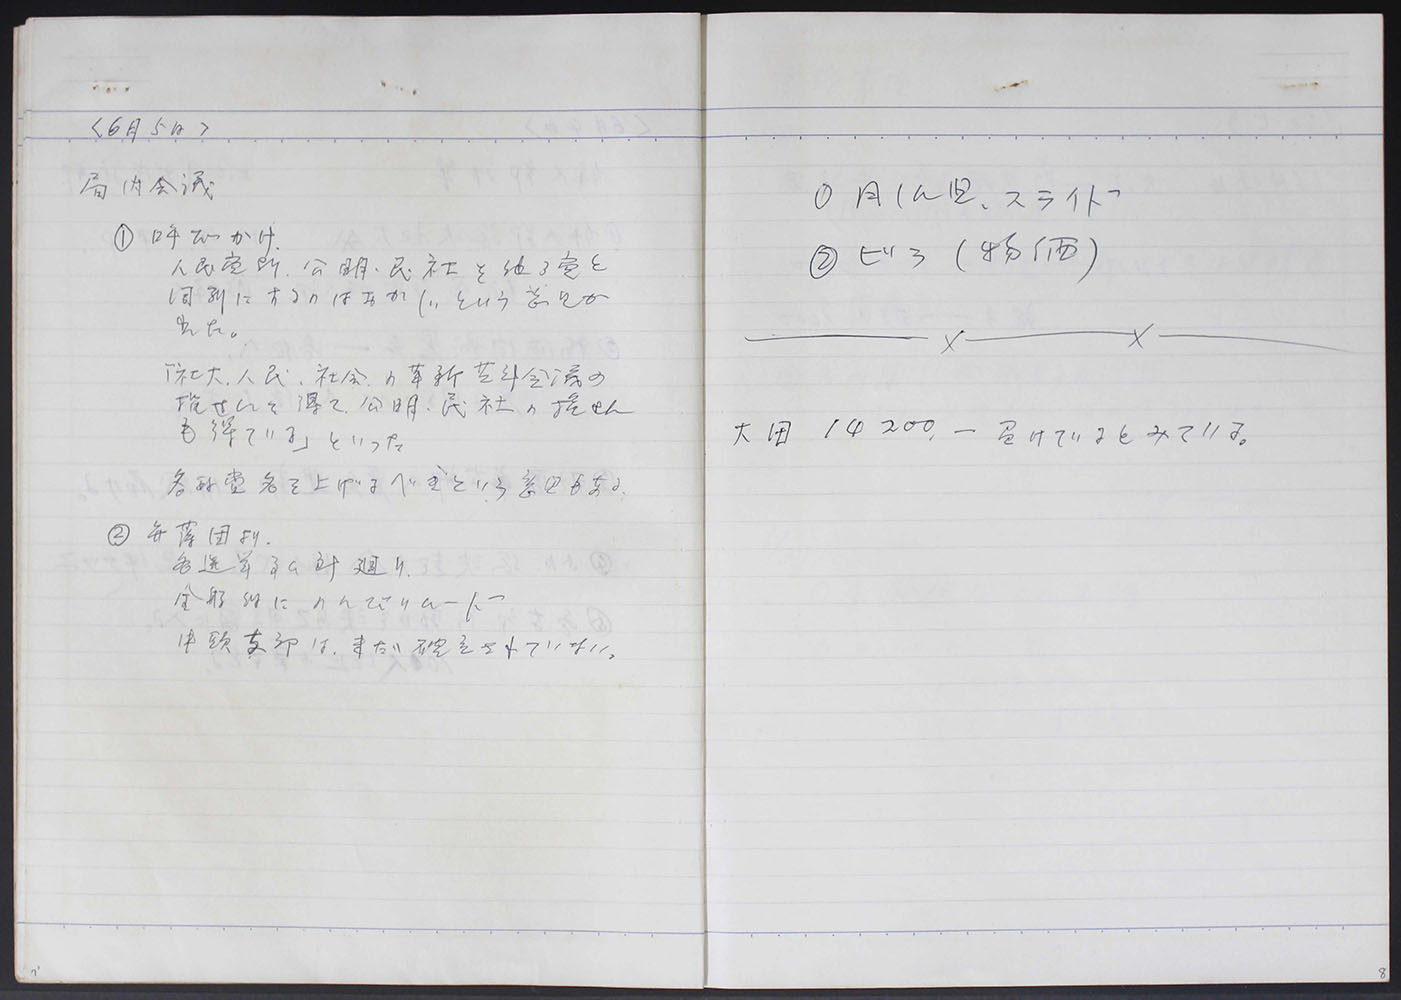 〈6月5日〉
局内会議
① 呼びかけ.
人民党所.公明・民社を他3党と
同列にするのはおかしいという意見が
出た。
「社大.人民.社会.の革新共斗会議の
推せんを得て.公明.民社の推せん
も得ている」といった
各政党名を上げるべきという意見もある.
②
各選挙区の
全般的にのんびりムード
中頭支部は.まだ確立されていない。
7
① スライド
② ビラ(物価)
大田 14200.ー 負けているとみている。
8